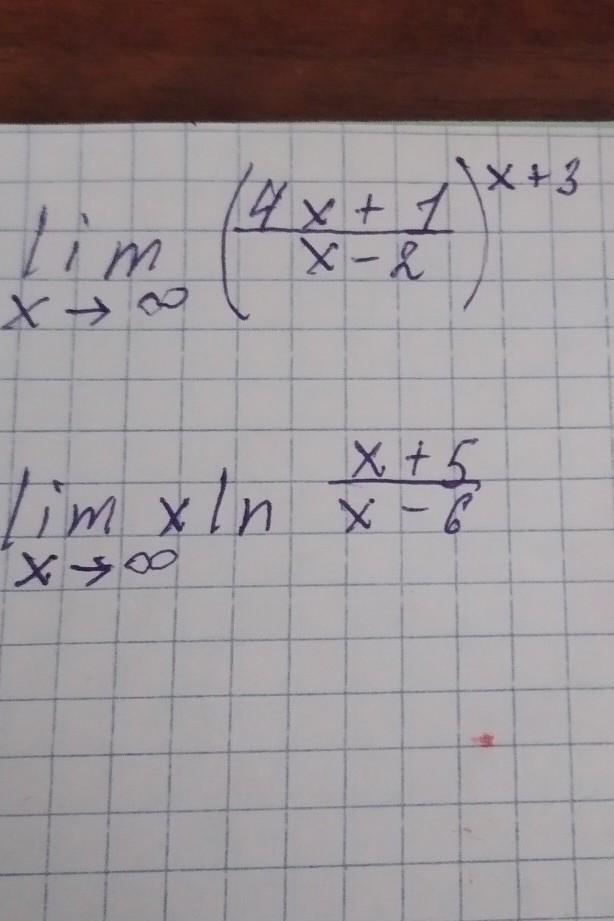 lim (4x + 1 / x - 2)^x + 3
x → ∞
lim x ln x + 5 / x - 6
x → ∞